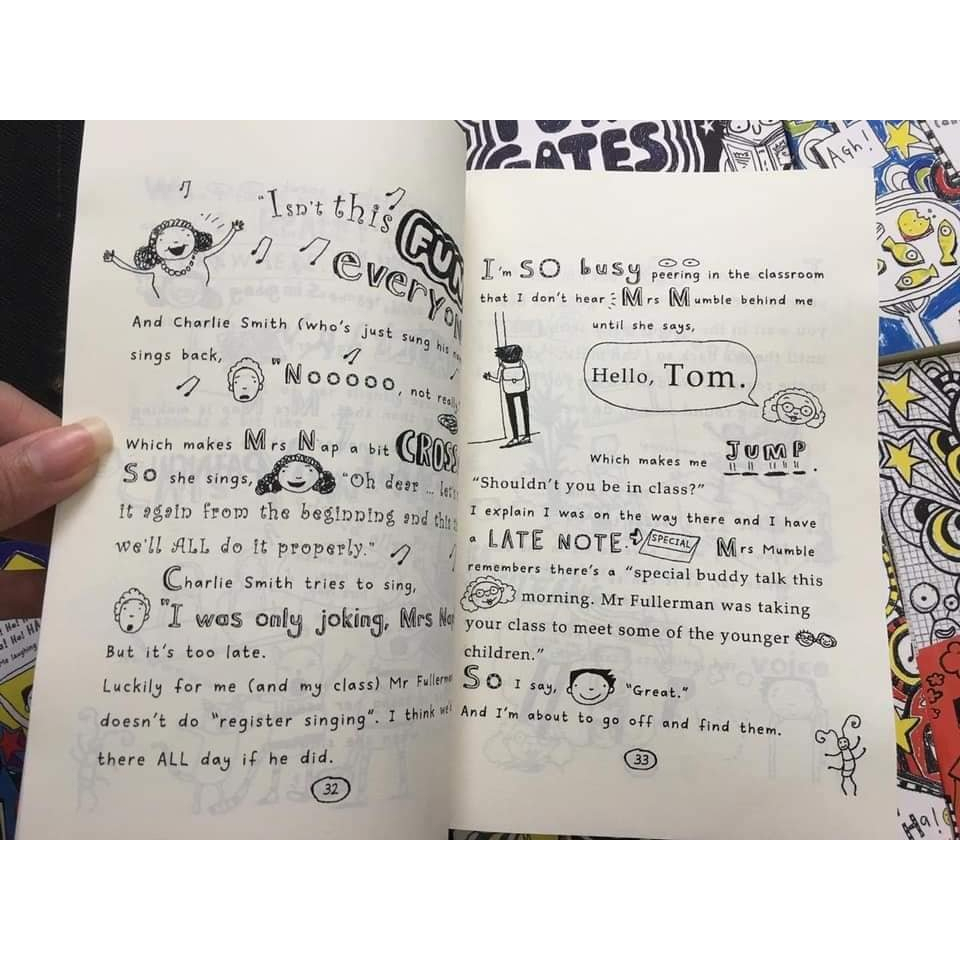 "Isn't this
FUN
everyon
And Charlie Smith (who's just sung his
sings back,
"Nooooo, not really
Which makes Mrs Nap a bit CROSS
So she sings, "Oh dear ...
it again from the beginning and this
we'll ALL do it properly."
Charlie Smith tries to sing,
"I was only joking, Mrs Nap
But it's too late.
Luckily for me (and my class) Mr Fullerman
doesn't do "register singing". I think
there ALL day if he did.
32
I'm SO busy peering in the classroom
that I don't hear Mrs Mumble behind me
until she says,
Hello, Tom.
Which makes me JUMP.
"Shouldn't you be in class?"
I explain I was on the way there and I have
a LATE NOTE. SPECIAL Mrs Mumble
remembers there's a "special buddy talk this
morning. Mr Fullerman was taking
your class to meet some of the younger
children."
So I say, "Great."
And I'm about to go off and find them.
33
GATES
Agh!
Ha!
Ha! HA